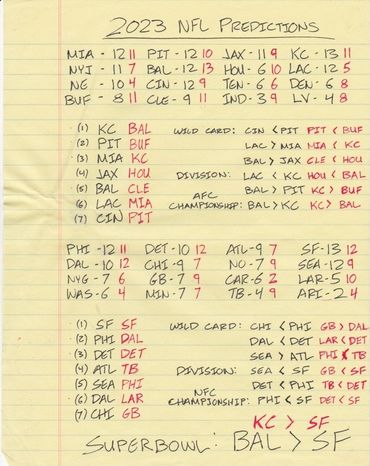 2023 NFL PREDICTIONS
MIA - 12 11 PIT - 12 10 JAX - 11 9 KC - 13 11
NYJ - 11 7 BAL - 12 13 HOU - 6 10 LAC - 12 5
NE - 10 4 CIN - 12 9 TEN - 6 6 DEN - 6 8
BUF - 8 11 CLE - 9 11 IND - 3 9 LV - 4 8
(1) KC BAL WILD CARD: CIN < PIT PIT < BUF
(2) PIT BUF LAC > MIA MIA < KC
(3) MIA KC BAL > JAX CLE < HOU
(4) JAX HOU DIVISION: LAC < KC HOU < BAL
(5) BAL CLE BAL > PIT KC > BUF
(6) LAC MIA AFC CHAMPIONSHIP: BAL > KC KC > BAL
(7) CIN PIT
PHI - 12 11 DET - 10 12 ATL - 9 7 SF - 13 12
DAL - 10 12 CHI - 9 7 NO - 7 9 SEA - 12 9
NYG - 7 6 GB - 7 9 CAR - 6 2 LAR - 5 10
WAS - 6 4 MIN - 7 7 TB - 4 9 ARI - 2 4
(1) SF SF WILD CARD: CHI < PHI GB > DAL
(2) PHI DAL DAL < DET LAR < DET
(3) DET DET SEA > ATL PHI < TB
(4) ATL TB DIVISION: SEA < SF GB < SF
(5) SEA PHI DET < PHI TB < DET
(6) DAL LAR NFC CHAMPIONSHIP: PHI < SF DET < SF
(7) CHI GB
KC > SF
SUPERBOWL: BAL > SF